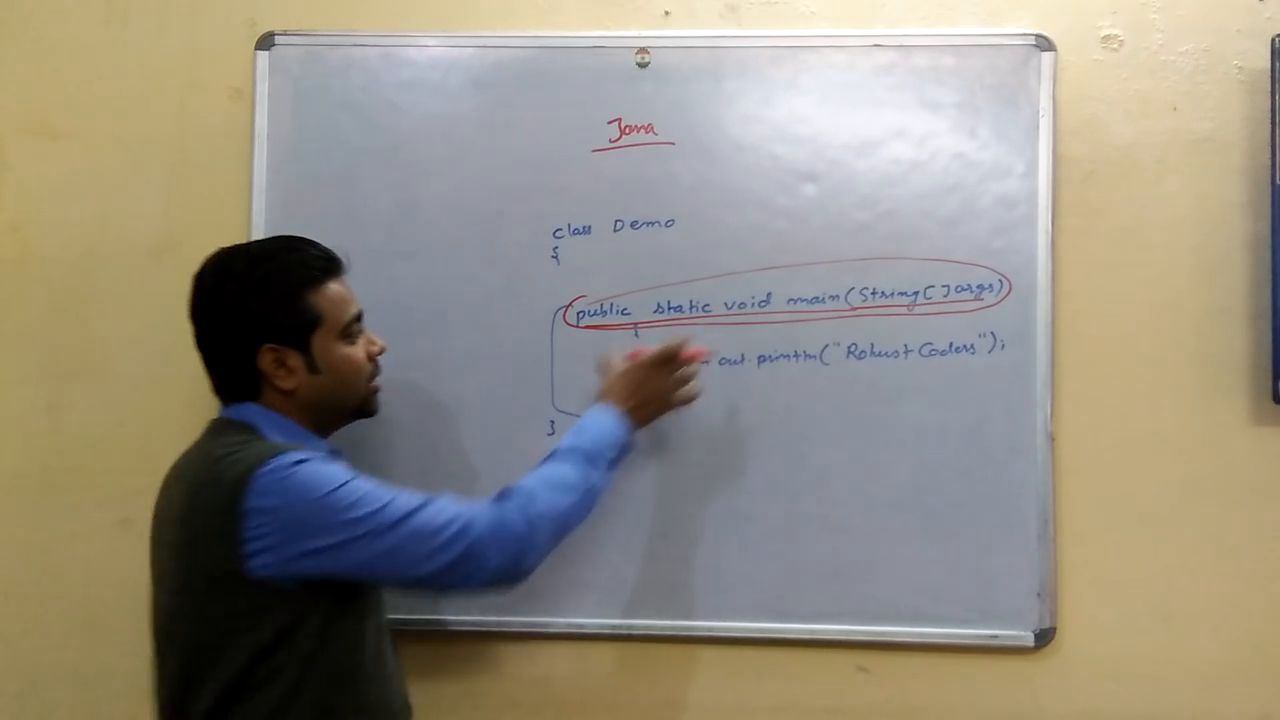 Java
class Demo
{
public static void main(String[] args)
{
out.println("Robust Coders");
}